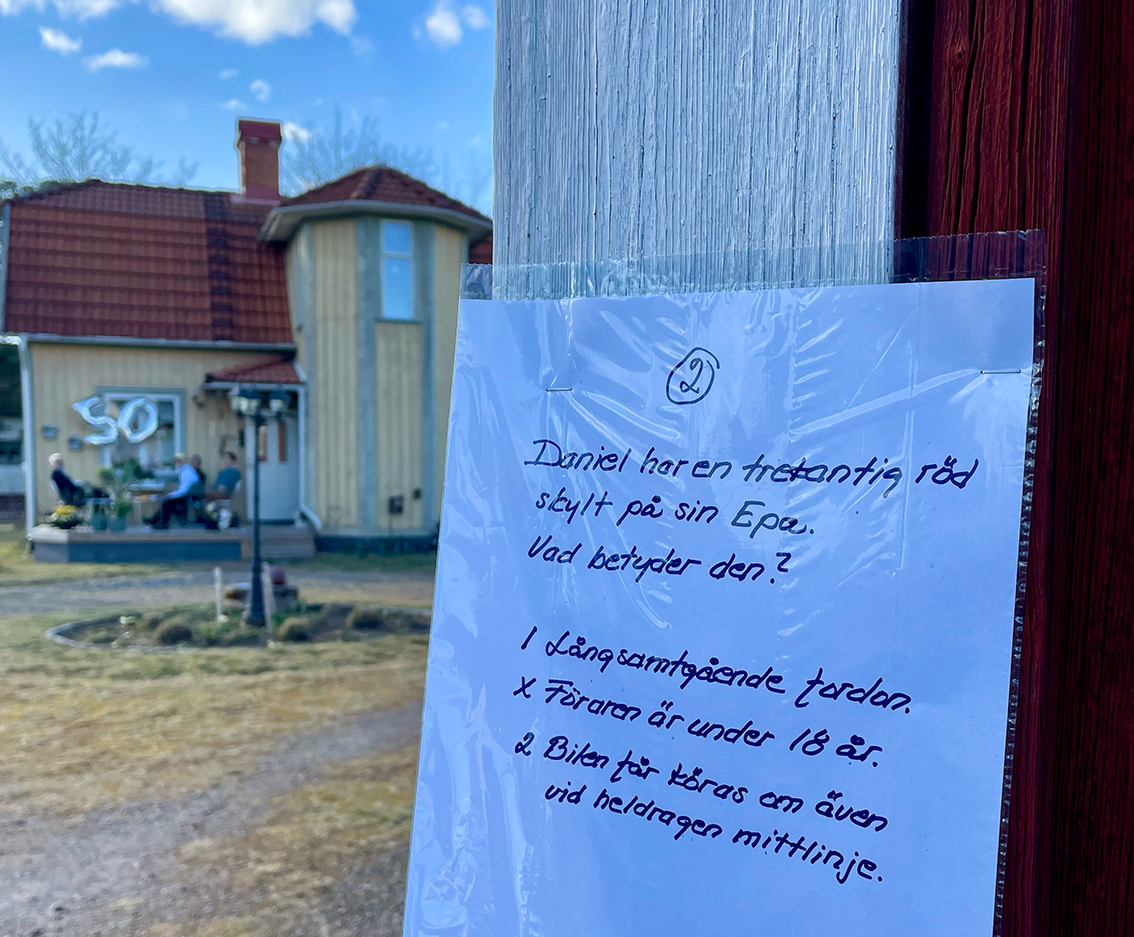 50
2
Daniel har en trekantig röd
skylt på sin Epa.
Vad betyder den?
1 Långsamtgående fordon.
X Föraren är under 18 år.
2 Bilen får köras om även
vid heldragen mittlinje.